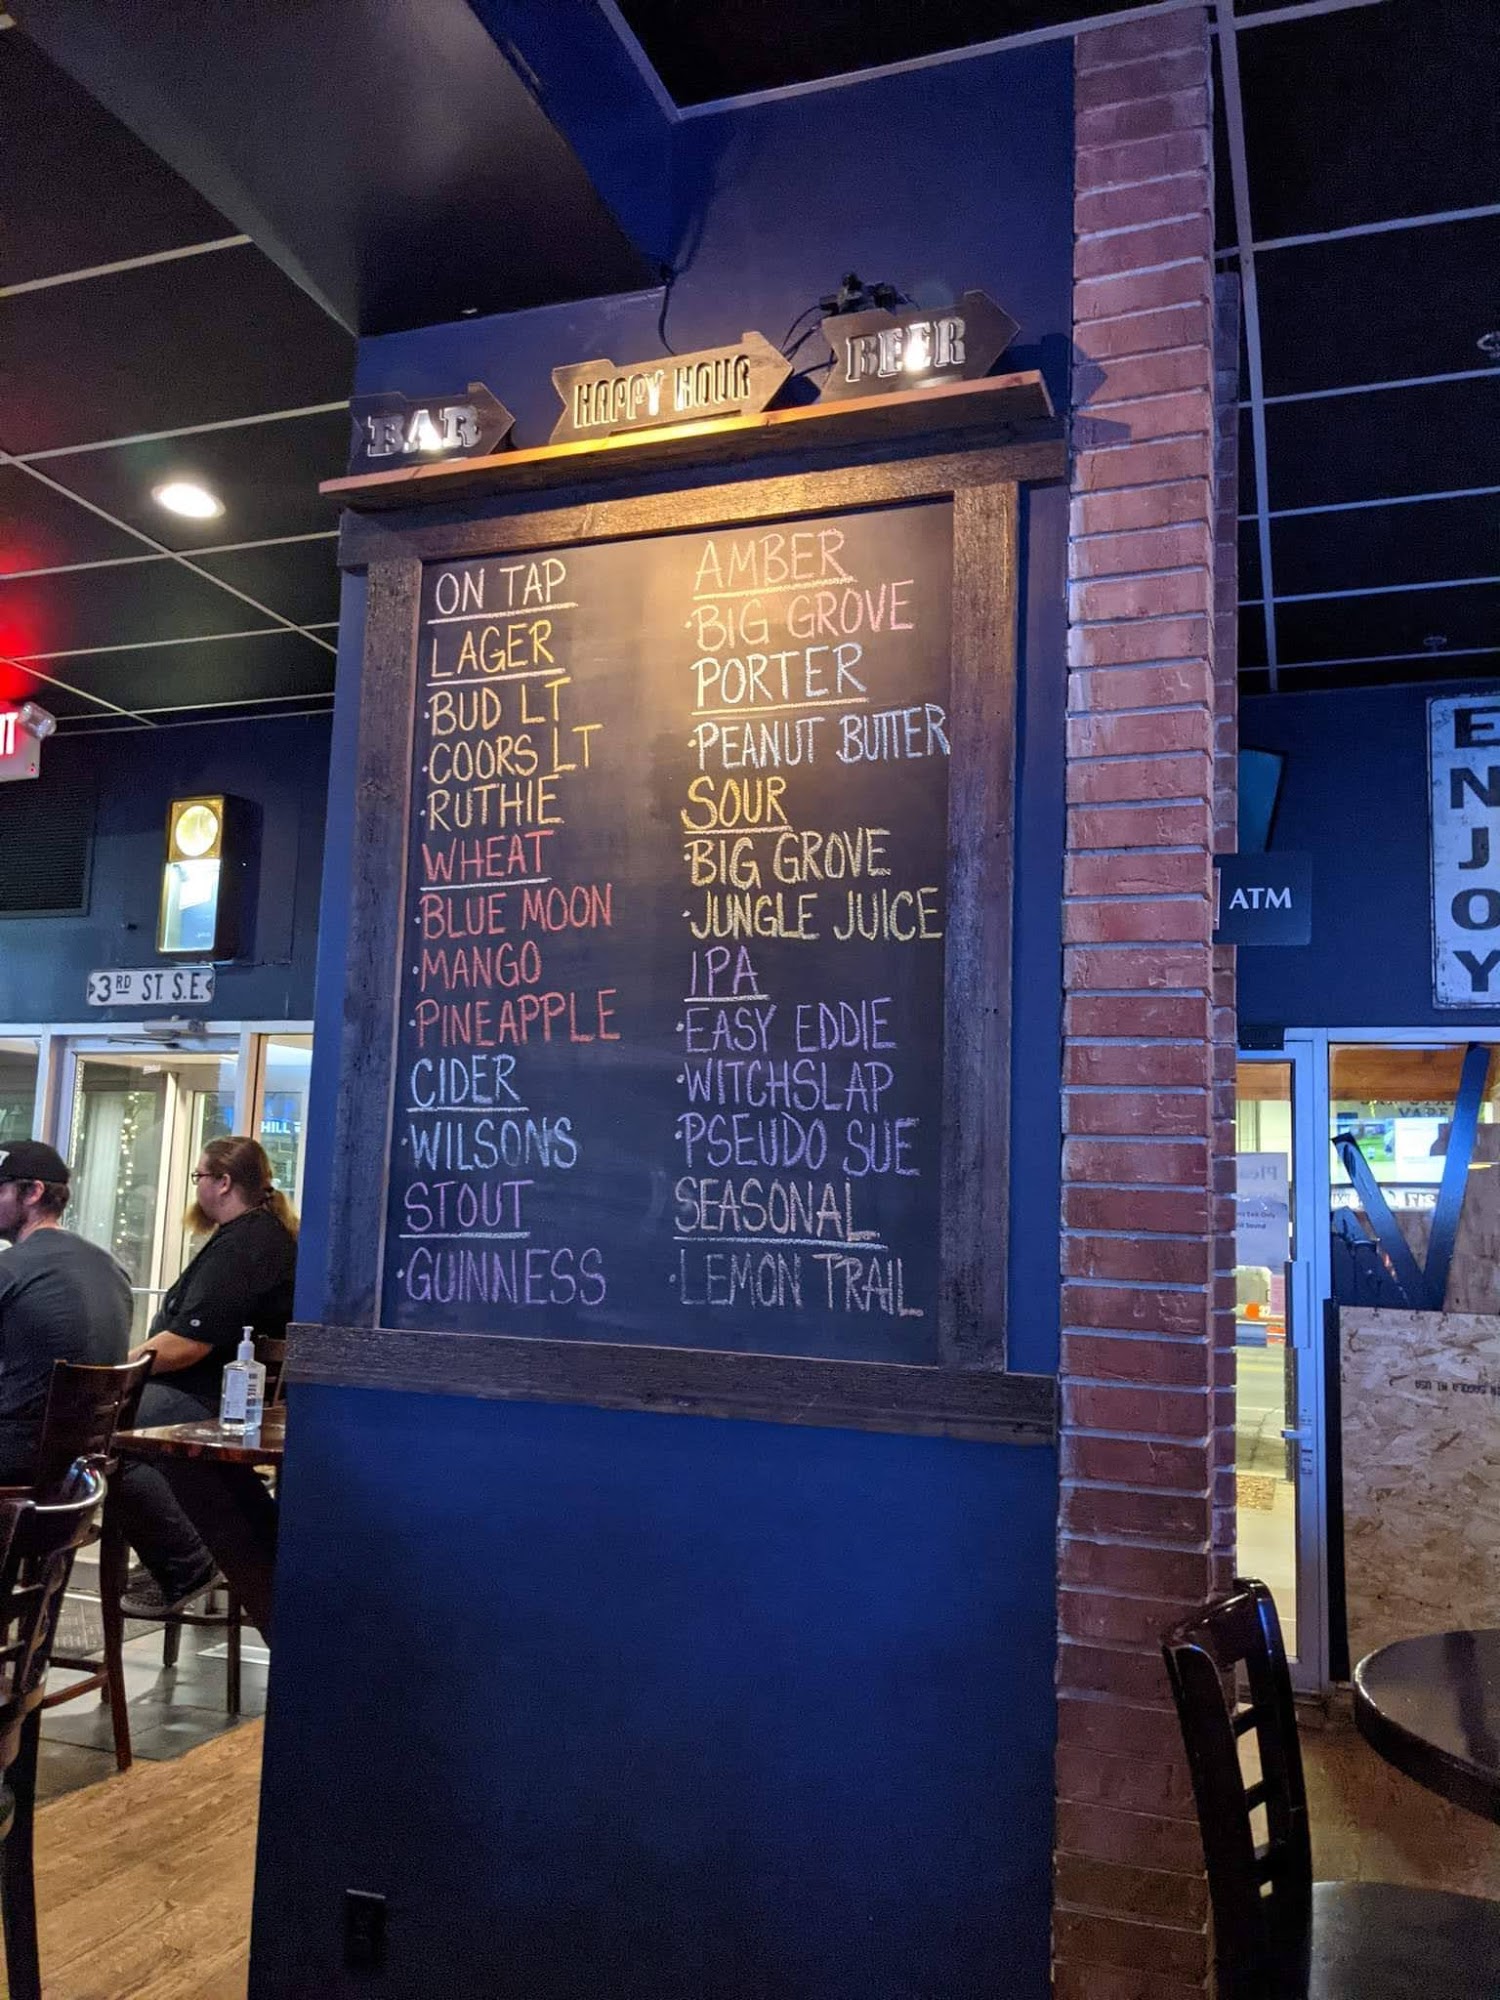 BAR
HAPPY HOUR
BEER
ON TAP
LAGER
·BUD LT
·COORS LT
·RUTHIE
WHEAT
·BLUE MOON
·MANGO
·PINEAPPLE
CIDER
·WILSONS
STOUT
·GUINNESS
AMBER
·BIG GROVE
PORTER
·PEANUT BUTTER
SOUR
·BIG GROVE
·JUNGLE JUICE
IPA
·EASY EDDIE
·WITCHSLAP
·PSEUDO SUE
SEASONAL
·LEMON TRAIL
3RD ST. S.E.
ATM
ENJOY
HILL